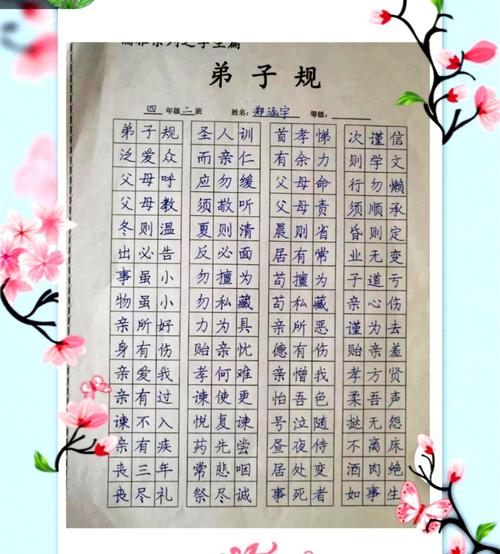 系列之学生篇
弟子规
四年级二班 姓名:郑涵宇 等级:
弟子规 圣人训 首孝悌 次谨信
泛爱众 而亲仁 有余力 则学文
父母呼 应勿缓 父母命 行勿懒
父母教 须敬听 父母责 须顺承
冬则温 夏则清 晨则省 昏则定
出必告 反必面 居有常 业无变
事虽小 勿擅为 苟擅为 子道亏
物虽小 勿私藏 苟私藏 亲心伤
亲所好 力为具 亲所恶 谨为去
身有伤 贻亲忧 德有伤 贻亲羞
亲爱我 孝何难 亲憎我 孝方贤
亲有过 谏使更 怡吾色 柔吾声
谏不入 悦复谏 号泣随 挞无怨
亲有疾 药先尝 昼夜侍 不离床
丧三年 常悲咽 居处变 酒肉绝
丧尽礼 祭尽诚 事死者 如事生